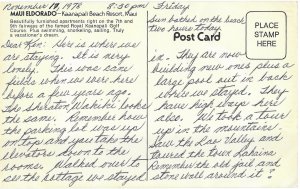 November 19, 1978 5:30 pm
MAUI ELDORADO - Kaanapali Beach Resort, Maui
Beautifully furnished apartments right on the 7th and
9th fairways of the famed Royal Kaanapali Golf
Course. Fun swimming, snorkeling, sailing. Truly
a vacationer's dream.
Dear Ken: Here is where we
are staying. It is very
lovely. This was some
fields when we were here
before a few years ago.
The Sheraton Waikiki looks
the same. Remember how
the parking lot was up
on top and you take the
elevators down to the
rooms. Walked over to
see the cottage we stayed
Friday
Sun bathed on the beach
two hours today.
Post Card
PLACE
STAMP
HERE
in. They are now
building new ones plus a
large pool out in back
where we stayed. They
have high ways here
also. We took a tour
up in the mountains.
Saw the Iao Valley and
toured the town Lahaina
Remember the old fort and
stone wall around it?